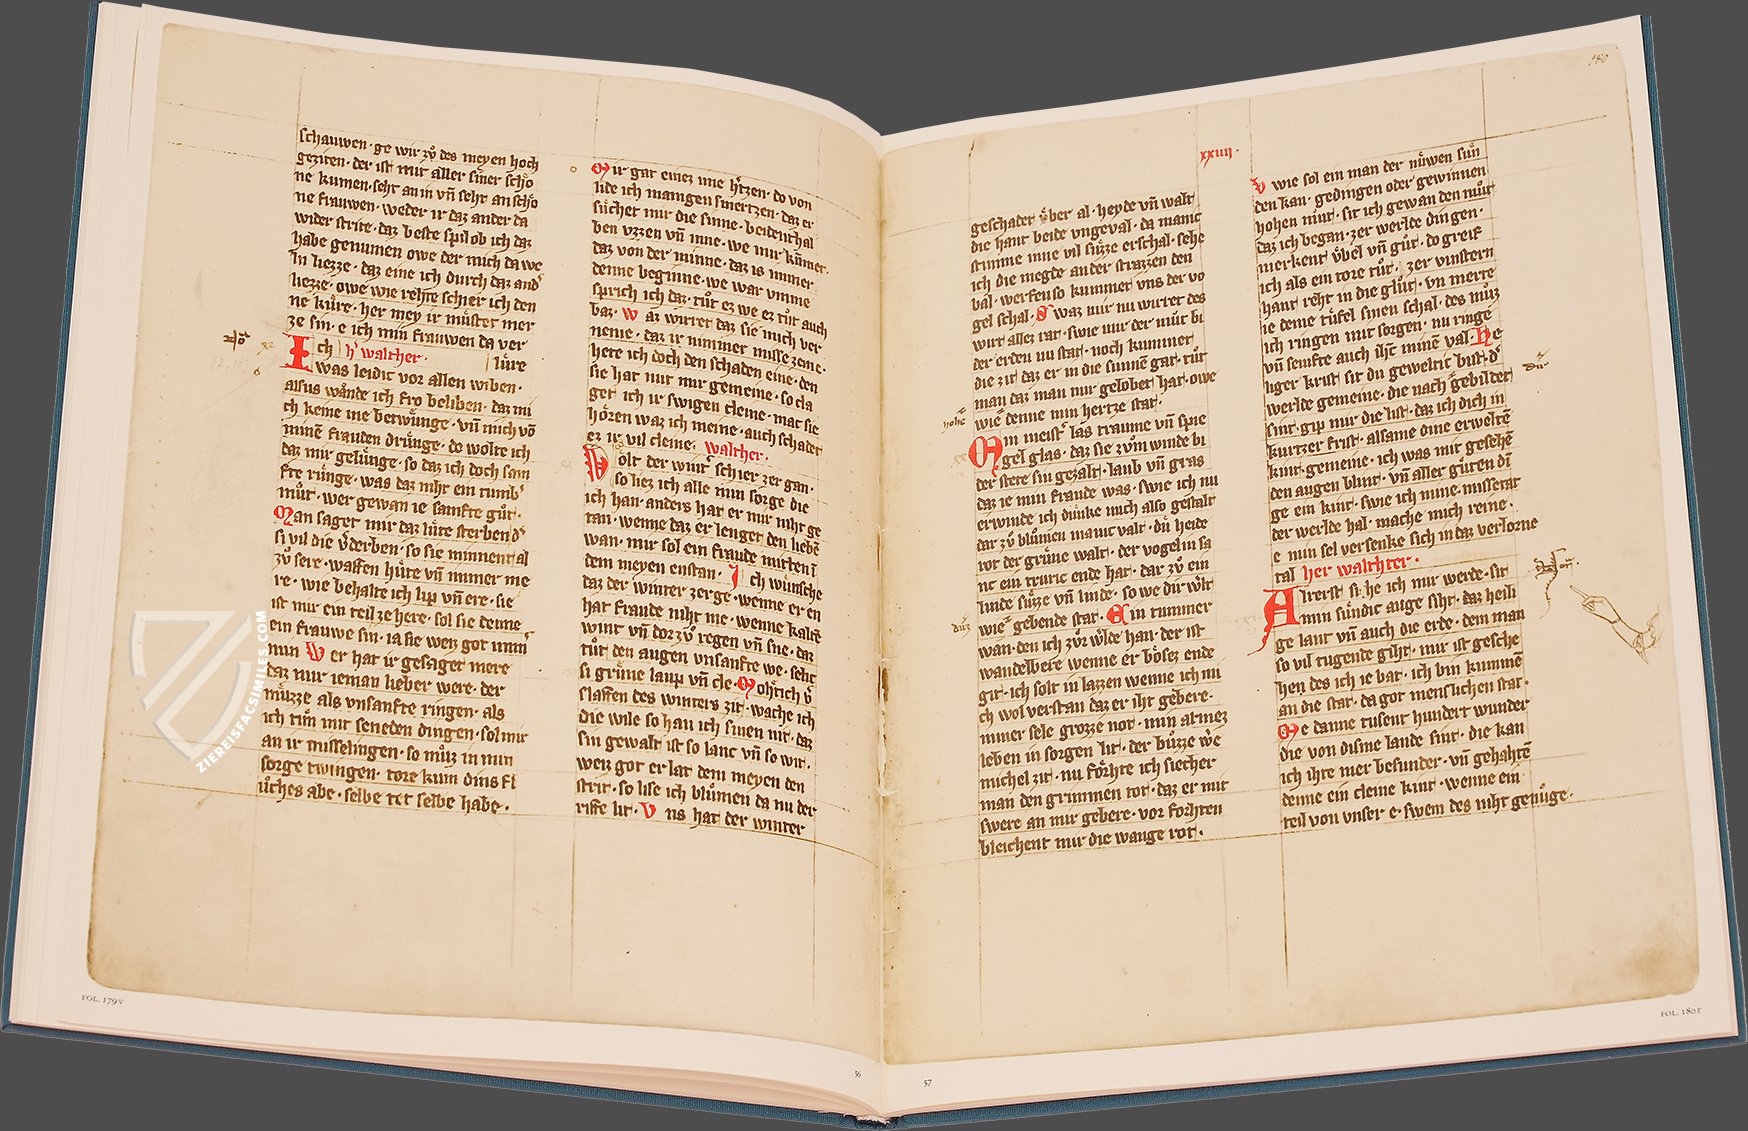 schauwen · ge wir zů des meyen hoch
geziten · der ist mit aller siner scho
ne kumen · seht an in vñ seht an scho
ne frauwen · weder ir daz ander da
wider strite · daz beste spil ob ich daz
habe genumen owe der mich da we
ln hezze · daz eine ich durch daz and
liezze · owe wie rehte schier ich den
ne kůre · her mey ir můstet mer
ze sin · e ich min frauwen da ver
Ich h' walther · lůre
was leidic vor allen wiben ·
alsus wånde ich fro beliben · daz mi
ch keine me betwůnge · vñ mich vō
minē frauden drůnge · do wolte ich
daz mir gelůnge · so daz ich doch sam
fte růnge · was daz niht ein tumb'
můt · wer gewan ie samfte gůt ·
Man saget mir daz lůte sterben d'
si vil die v'derben · so sie minnent al
zů sere · waffen hůte vñ immer me
re · wie behalte ich lip vñ ere · sie
ist mir ein teil ze here · sol sie denne
ein frauwe sin · ia sie weiz got nim
min Wer hat ir gesaget mere
daz mir ieman lieber were · der
můzze als vnsanfte ringen · als
ich tůn mit seneden dingen · sol mir
an ir misselingen · so můz in min
sorge twingen · tore kum dins fl
ůches abe · selbe tet selbe habe ·
Mir gat einez me h'tzen · do von
lide ich manigen smertzen · daz er
sůchet mir die sinne · beidenthal
ben vzzen vñ inne · we mir kůmer
daz von der minne · daz is immer
denne beginne · we war vmme
sprich ich daz · tůt ez we ez tůt auch
baz · Waz wirret daz sie mich ver
neme · daz ir nimmer misse zeme ·
hete ich doch den schaden eine · den
sie hat mit mir gemeine · so cla
get ich ir swigen cleine · mac sie
hőren waz ich meine · auch schadet
ez ir vil cleine · walther ·
Wolt der wint' schier zer gan ·
so liez ich alle min sorge die
ich han · anders hat er mir niht ge
tan · wenne daz er lenget den liebē
wan · mir sol ein fraude mitten ī
dem meyen enstan · Ich wůnsche
daz der winter zerge · wenne er en
hat fraude niht me · wenne kalte
wint vñ dor zů regen vñ sne · daz
tůt den augen vnsanfte we · seht
si grůne laup vñ cle · Moht ich v'
slaffen des winters zit · wache ich
die wile so han ich sinen nit · daz
sin gewalt ist so lanc vñ so wit ·
weiz got er lat dem meyen den
strit · so lise ich blůmen da nu der
riffe lit · Vns hat der winter
FOL. 179v
56
180
xxiiij ·
geschadet v̊ber al · heyde vñ walt
die hant beide vngeval · da manic
stimme inne vil sůzze erschal · sehe
ich die megde an der strazzen den
bal · werfen so kummet vns der vo
gel schal · Swaz mir nu wirret des
wirt alles rat · swie mir der můt bi
der erden nu stat · noch kummet
die zit daz er in die sunnē gat · tůt
man daz man mir gelobet hat · owe
wie denne min hertze stat ·
Min meist' las traume vñ spie
gel glas · daz sie zům winde bi
der stete sin gezalt · laub vñ gras
daz ie min fraude was · swie ich nu
erwinde ich dunke mich also gestalt
dar zů blůmen manicvalt · dů heide
rot der grůne walt · der vogelin sa
nc ein truric ende hat · dar zů ein
linde sůze vñ linde · so we dir w'lt
wie gebende stat · Ein tummer
wan · den ich zůr w'lde han · der ist
wandelbere wenne er bősez ende
git · ich solt in lazzen wenne ich mi
ch wol verstan daz er iht gebere ·
miner sele grozze not · min armez
leben in sorgen lit · der bůzze w'e
michel zit · nu főrhte ich siecher
man den grimmen tot · daz er mit
swere an mir gebere · vor forhten
bleichent mir die wange rot ·
Wie sol ein man der nůwen sůn
den kan · gedingen oder gewinnen
hohen můt · sit ich gewan den můt
daz ich began · zer werlde dingen ·
merkent v̊bel vñ gůt · do greif
ich als ein tore tůt · zer vinstern
hant reht in die glůt · vñ merte
ie deme tůfel sinen schal · des můz
ich ringen mit sorgen · nu ringe
vñ senfte auch ihc minē val · He
liger krist sit du geweltic bist · d'
werlde gemeine · die nach gebildet
sint · gip mir die list · daz ich dich in
kurtzer frist · alsame dine erweltē
kint · gemeine · ich was mit gesehē
den augen blint · vñ aller gůten di
ge ein kint · swie ich mine missetat
der werlde hal · mache mich reine ·
e min sel versenke sich in daz verlorne
tal her walthter ·
Alrerst si he ich mir werde · sit
min sůndic auge siht · daz heili
ge lant vñ auch die erde · dem man
so vil tugende giht · mir ist gesche
hen des ich ie bat · ich bin kummē
an die stat · da got menslichen stat ·
Me danne tusent hundert wunder
die von disme lande sint · die kan
ich ihte mer besunder · vñ gehahtē
denne ein cleine kint · wenne ein
teil von vnser e · swem des niht genůge ·
57
FOL. 180r
ZIEREISFACSIMILES.COM